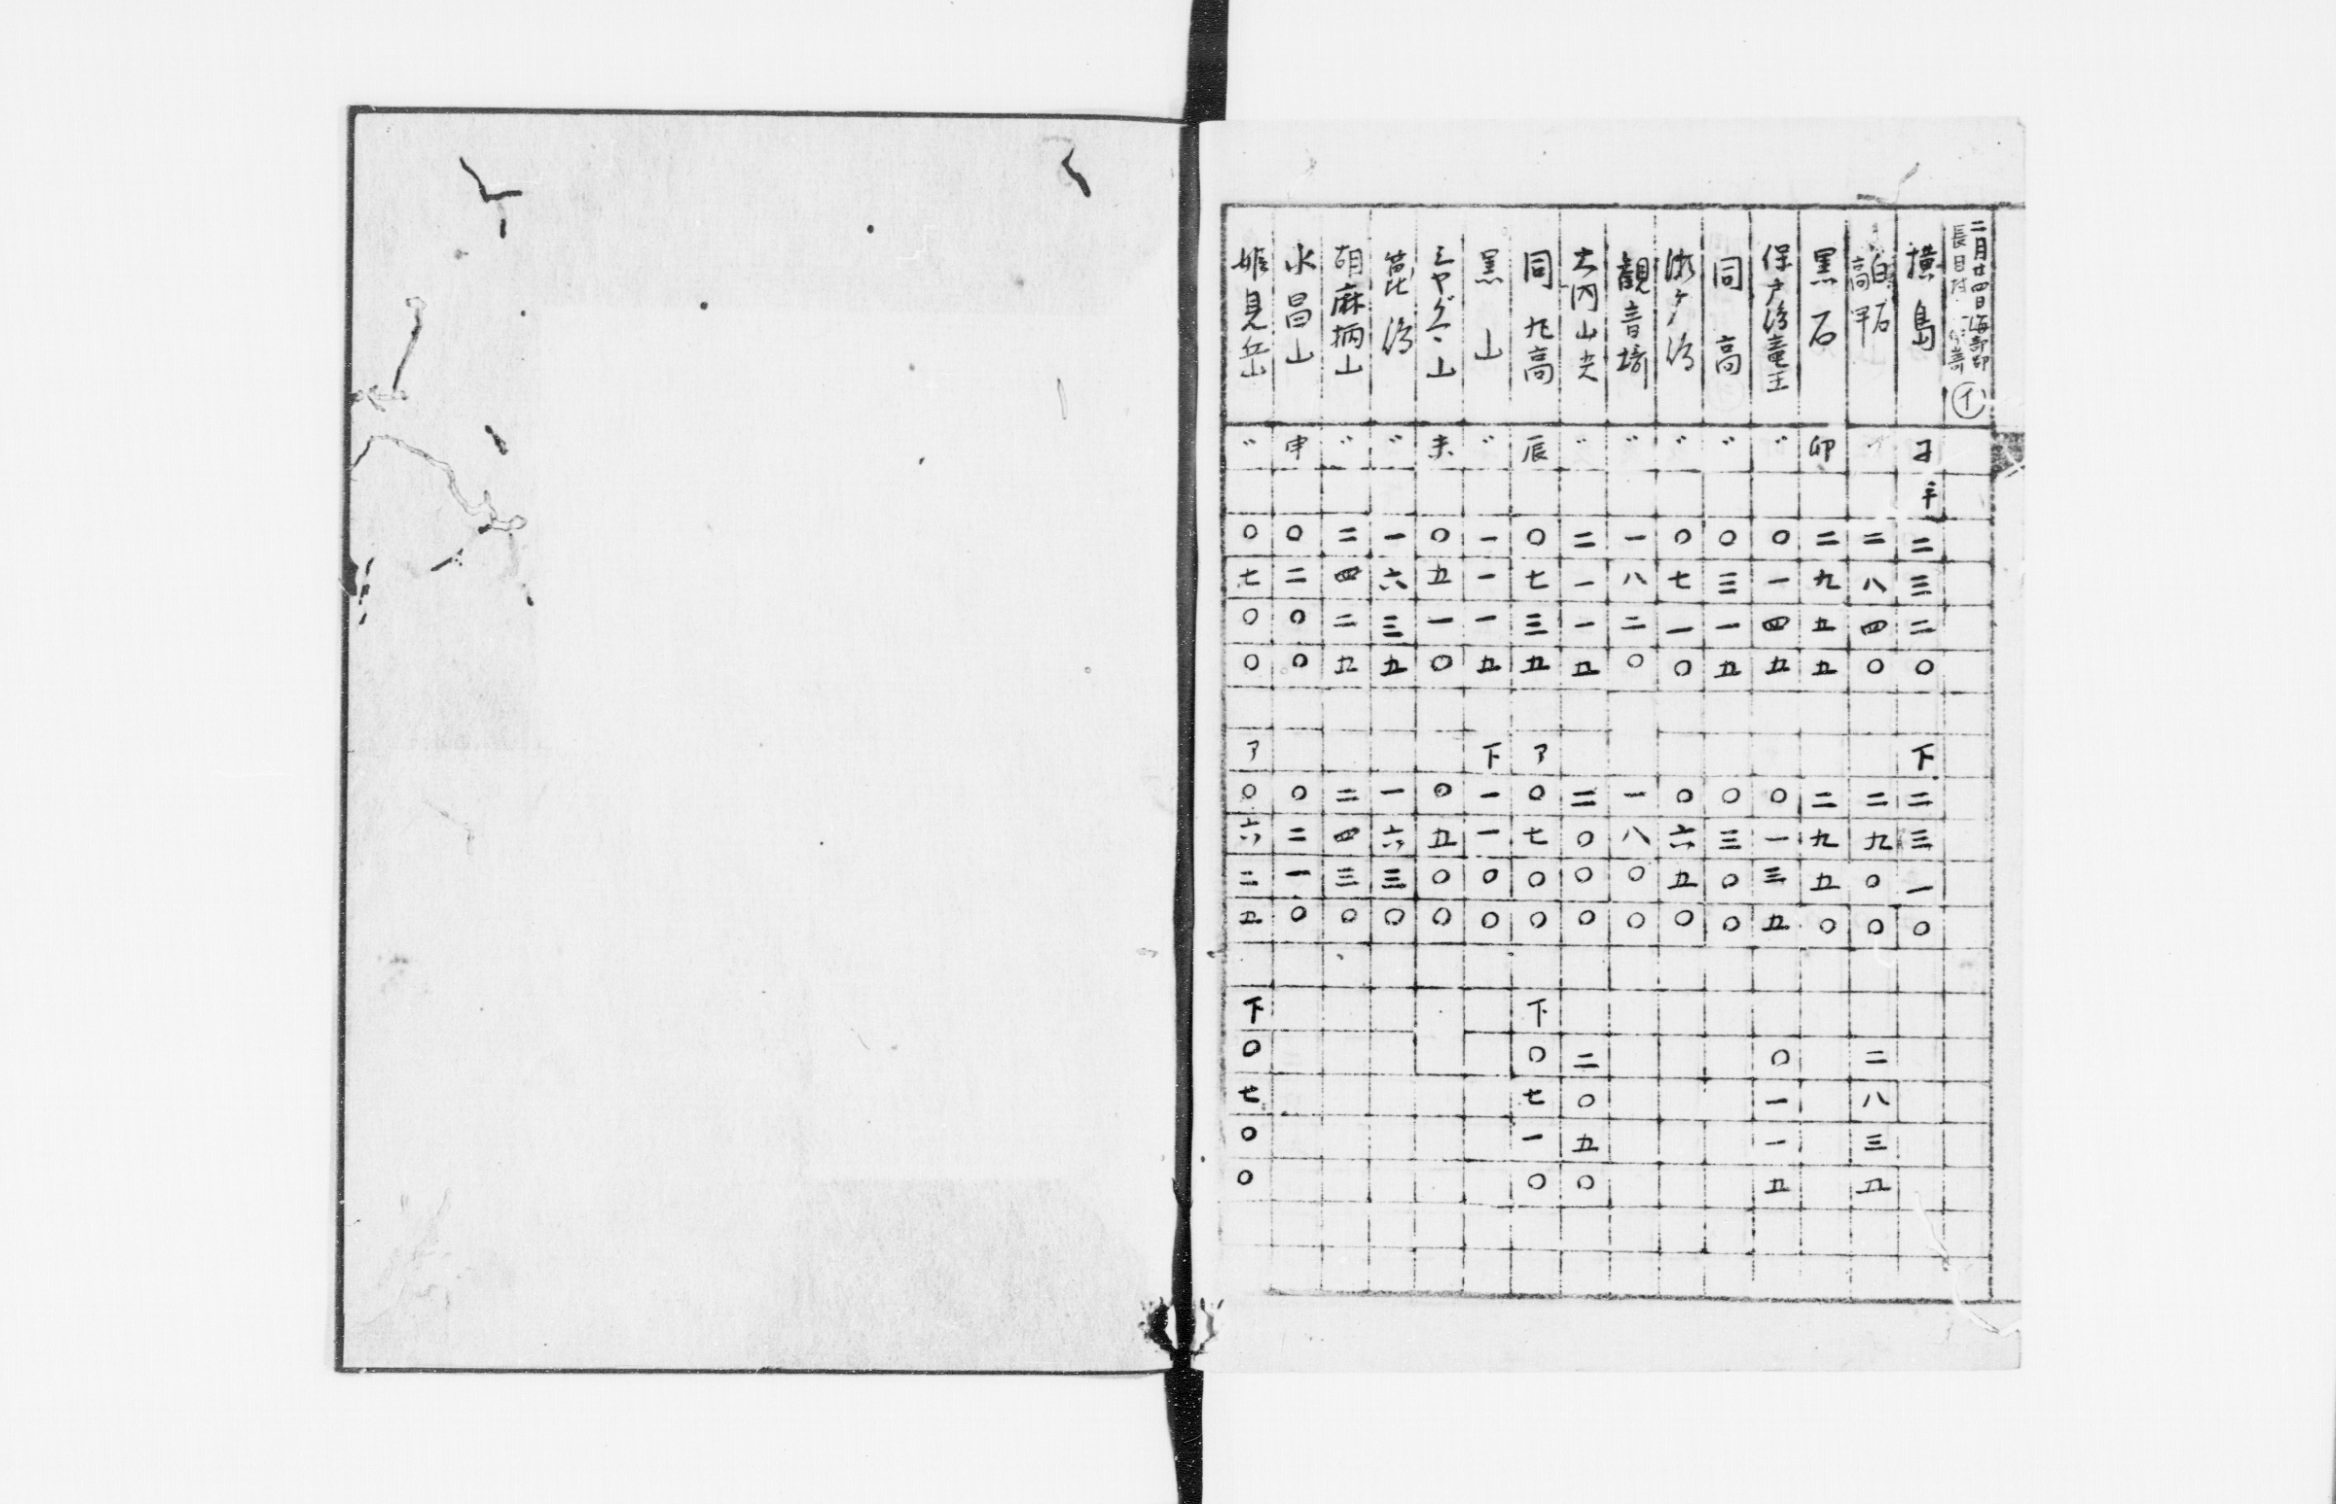 二月廿四日海部郡
長目村
㋑
横島 下二三二〇 下二三一〇
白石 高平 〃 二八四〇 二九〇〇 二八三五
黒石 卯 二九五五 二九五〇
保戸浦竜王 〃 〇一四五 〇一三五 〇一一五
同高 〃 〇三一五 〇三〇〇
浦 〃 〇七一〇 〇六五〇
観音埼 〃 一八二〇 一八〇〇
大内山 〃 二一一五 二〇〇〇 二〇五〇
同 高 辰 〇七三五 ア〇七〇〇 下〇七一〇
黒山 〃 一一一五 下一一〇〇
山 未 〇五一〇 〇五〇〇
浦 〃 一六三五 一六三〇
胡麻柄山 〃 二四二五 二四三〇
水昌山 申 〇二〇〇 〇二一〇
姫見岳 〃 〇七〇〇 ア〇六二五 下〇七〇〇